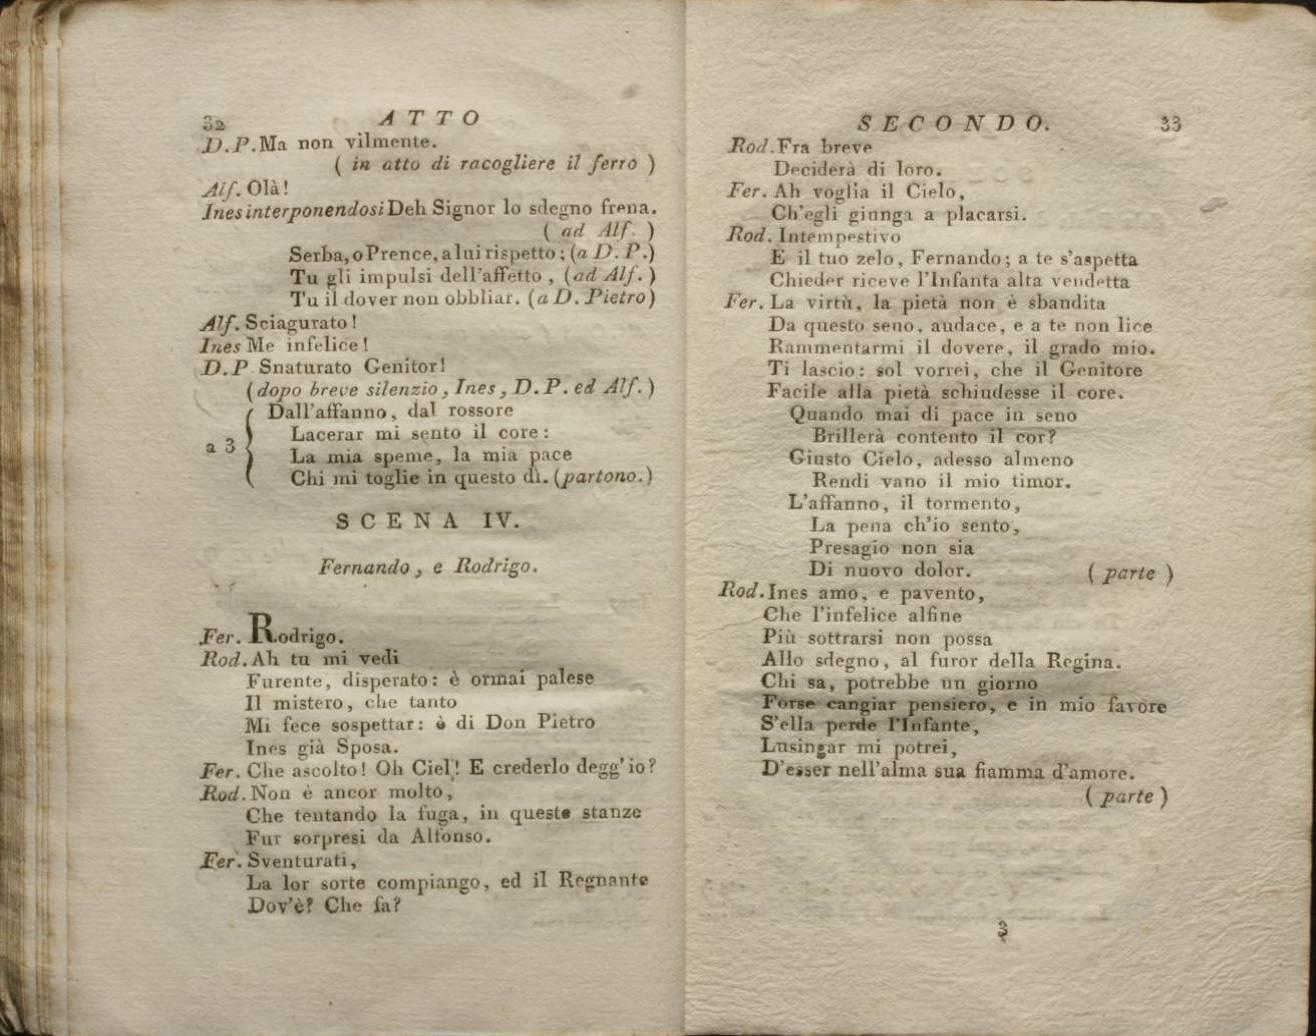 32
ATTO
D.P. Ma non vilmente.
( in atto di racogliere il ferro )
Alf. Olà!
Ines interponendosi Deh Signor lo sdegno frena.
( ad Alf. )
Serba, o Prence, a lui rispetto; (a D. P.)
Tu gli impulsi dell'affetto, (ad Alf.)
Tu il dover non obbliar. (a D. Pietro)
Alf. Sciagurato!
Ines Me infelice!
D.P Snaturato Genitor!
(dopo breve silenzio, Ines, D. P. ed Alf.)
Dall'affanno, dal rossore
Lacerar mi sento il core:
a 3
La mia speme, la mia pace
Chi mi toglie in questo dì. (partono.)
SCENA IV.
Fernando, e Rodrigo.
Fer. Rodrigo.
Rod. Ah tu mi vedi
Furente, disperato: è ormai palese
Il mistero, che tanto
Mi fece sospettar: è di Don Pietro
Ines già Sposa.
Fer. Che ascolto! Oh Ciel! E crederlo degg'io?
Rod. Non è ancor molto,
Che tentando la fuga, in queste stanze
Fur sorpresi da Alfonso.
Fer. Sventurati,
La lor sorte compiango, ed il Regnante
Dov'è? Che fa?
SECONDO.
33
Rod. Fra breve
Deciderà di loro.
Fer. Ah voglia il Cielo,
Ch'egli giunga a placarsi.
Rod. Intempestivo
E il tuo zelo, Fernando; a te s'aspetta
Chieder riceve l'Infanta alta vendetta
Fer. La virtù, la pietà non è sbandita
Da questo seno, audace, e a te non lice
Rammentarmi il dovere, il grado mio.
Ti lascio: sol vorrei, che il Genitore
Facile alla pietà schiudesse il core.
Quando mai di pace in seno
Brillerà contento il cor?
Giusto Cielo, adesso almeno
Rendi vano il mio timor.
L'affanno, il tormento,
La pena ch'io sento,
Presagio non sia
Di nuovo dolor. ( parte )
Rod. Ines amo, e pavento,
Che l'infelice alfine
Più sottrarsi non possa
Allo sdegno, al furor della Regina.
Chi sa, potrebbe un giorno
Forse cangiar pensiero, e in mio favore
S'ella perde l'Infante,
Lusingar mi potrei,
D'esser nell'alma sua fiamma d'amore.
( parte )
3